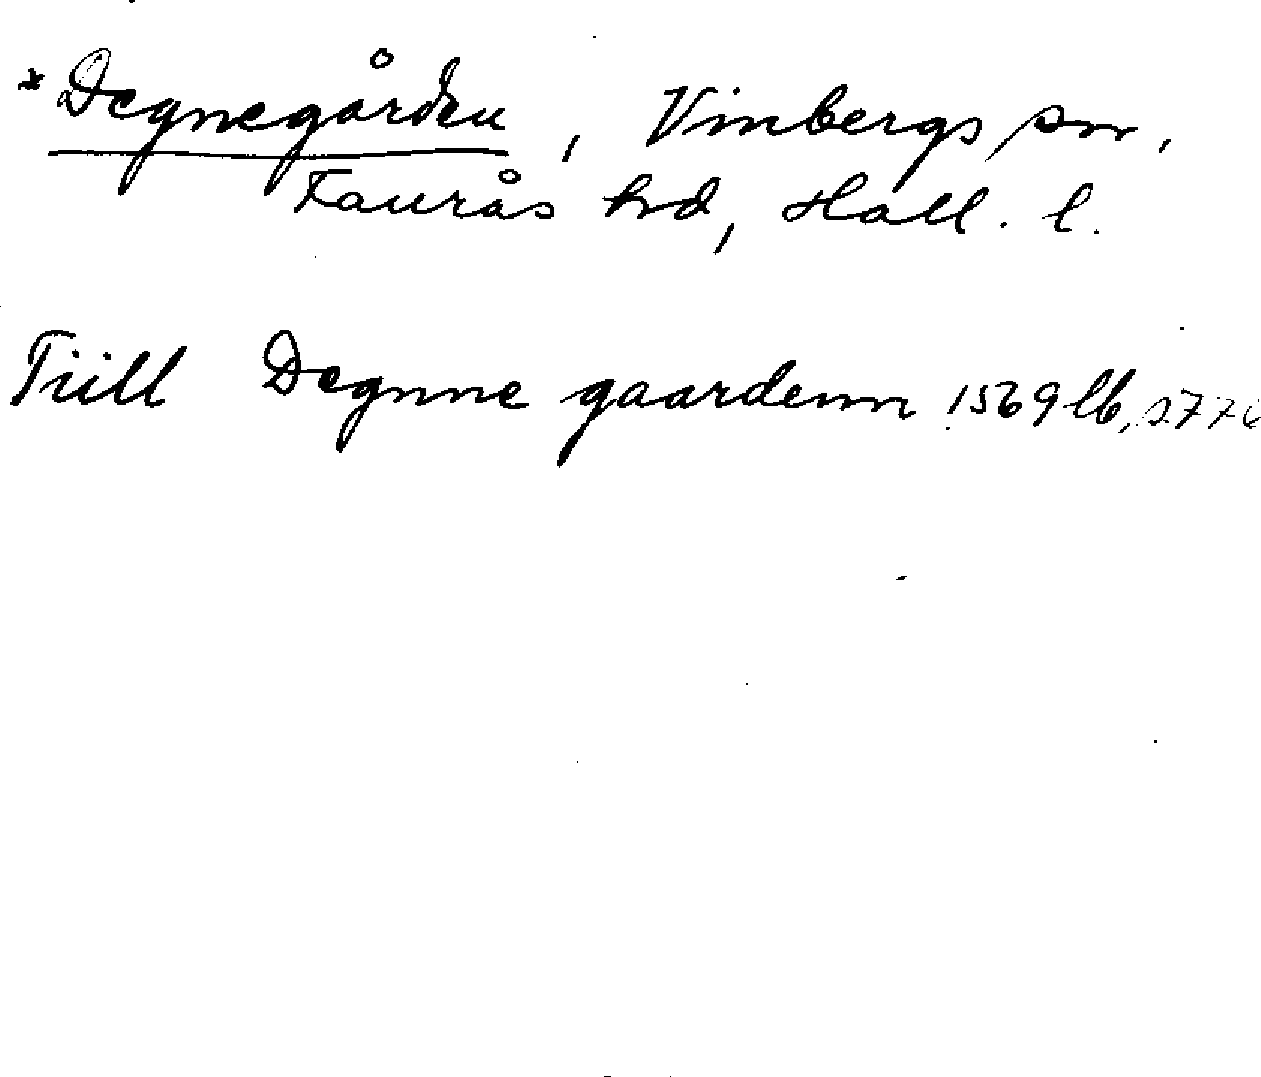 *Degnegården, Vinbergs sn,
Faurås hd, Hall. l.
Tiill Degnne gaardenn 1569 lb,